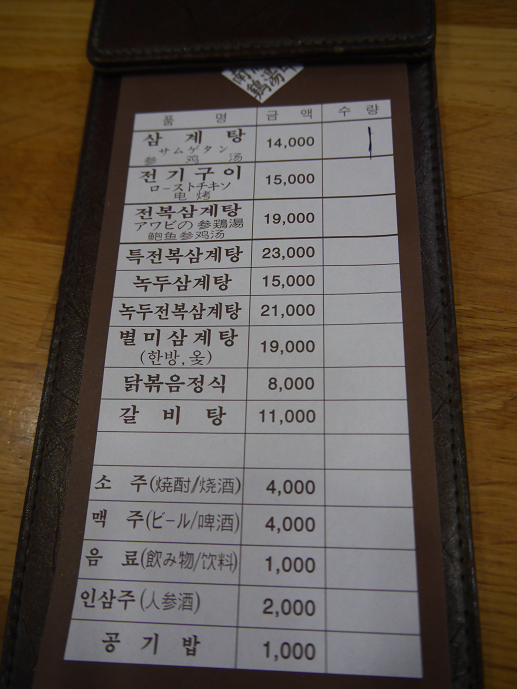 鶏湯
품 명 금 액 수 량
삼 계 탕 14,000 1
サムゲタン
参 鸡 汤
전기구이 15,000
ローストチキン
电 烤
전복삼계탕 19,000
アワビの 参鶏湯
鲍鱼参鸡汤
특전복삼계탕 23,000
녹두삼계탕 15,000
녹두전복삼계탕 21,000
별미삼계탕 19,000
(한방, 옻)
닭볶음정식 8,000
갈 비 탕 11,000
소 주(焼酎/烧酒) 4,000
맥 주(ビール/啤酒) 4,000
음 료(飲み物/饮料) 1,000
인삼주(人参酒) 2,000
공 기 밥 1,000